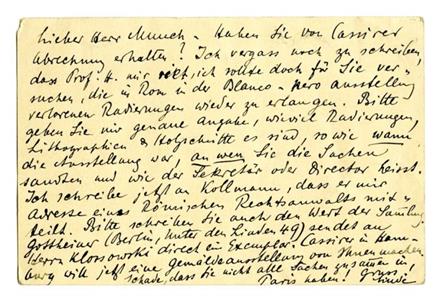 Lieber Herr Munch – Haben Sie von Cassirer
Abrechnung erhalten? Ich vergass noch zu schreiben,
dass Prof. H. mir riet, ich sollte doch für Sie ver-
suchen, die in Rom in der Blanco & Nero ausstellung
verlorenen Radierungen wieder zu erlangen. Bitte
geben Sie mir genaue Angabe, wieviel Radierungen,
Lithographien & Holzschnitte es sind, sowie wann
die Ausstellung war, an wen Sie die Sachen
sandten und wie der Sekretär oder Director heisst.
Ich schreibe jetzt an Kollmann, dass er mir
Adresse eines Römischen Rechtsanwalts mit-
teilt. Bitte schreiben Sie auch den Wert der Samlung
Gottheiner (Berlin, Unter den Linden 49) sendet an
Herrn Klossowski direct ein Exemplar. Cassirer in Ham-
burg will jetzt eine gemäldeausstellung von Ihnen machen
Schade, dass Sie nicht alle Sachen zusammen in
Paris haben! Gruss! Linde